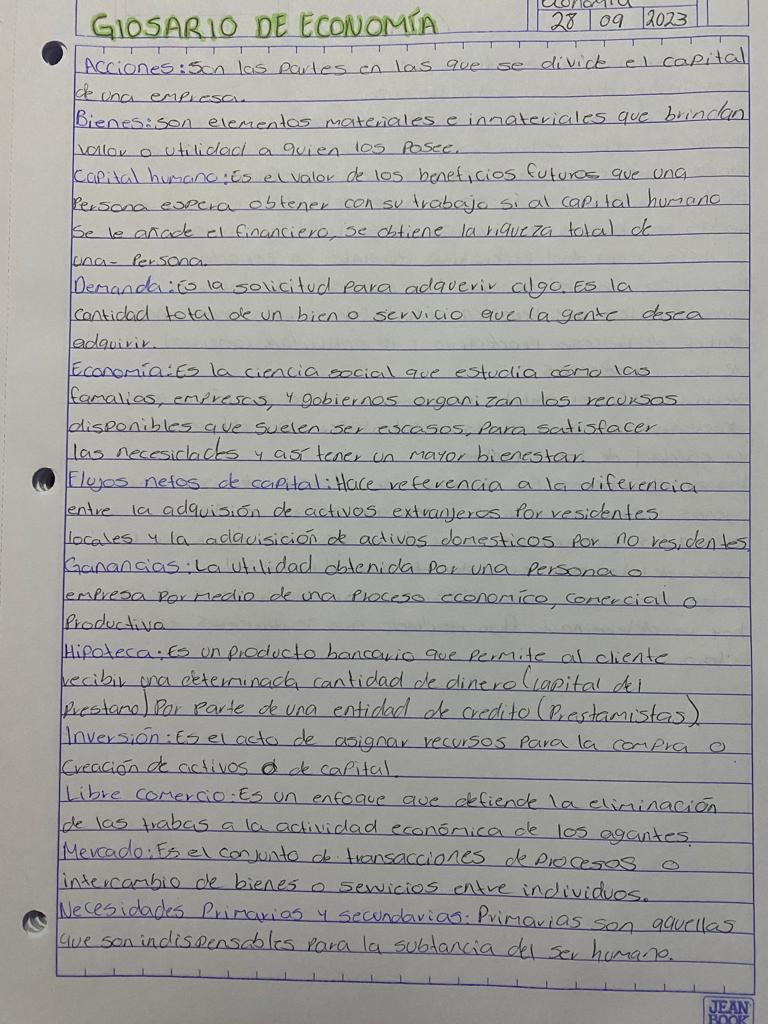 GlOSARIO DE ECONOMÍA
economía
28 09 2023
Acciones: Son las partes en las que se divide el capital
de una empresa.
Bienes: son elementos materiales e inmateriales que brindan
valor o utilidad a quien los posee.
Capital humano: Es el valor de los beneficios futuros que una
Persona espera obtener con su trabajo si al capital humano
se le añade el financiero, se obtiene la riqueza total de
una- Persona.
Demanda: Es la solicitud para adquerir algo. Es la
cantidad total de un bien o servicio que la gente desea
adquirir.
Economía: Es la ciencia social que estudia cómo las
familias, empresas, y gobiernos organizan los recursos
disponibles que suelen ser escasos, Para satisfacer
las necesidades y así tener un mayor bienestar.
Flujos netos de capital: Hace referencia a la diferencia
entre la adquisión de activos extranjeros por residentes
locales y la adquisición de activos domesticos por no residentes.
Ganancias: La utilidad obtenida por una persona o
empresa por medio de una proceso economico, comercial o
Productiva
Hipoteca: Es un producto bancario que permite al cliente
recibir una determinada cantidad de dinero (capital del
prestano) Por parte de una entidad de credito (Prestamistas)
Inversión: Es el acto de asignar recursos para la compra o
Creación de activos o de capital.
Libre comercio: Es un enfoque que defiende la eliminación
de las trabas a la actividad económica de los agantes.
Mercado: Es el conjunto de transacciones de procesos o
intercambio de bienes o servicios entre individuos.
Necesidades Primarias y secundarias: Primarias son aquellas
que son indispensables para la substancia del ser humano.
JEAN
BOOK